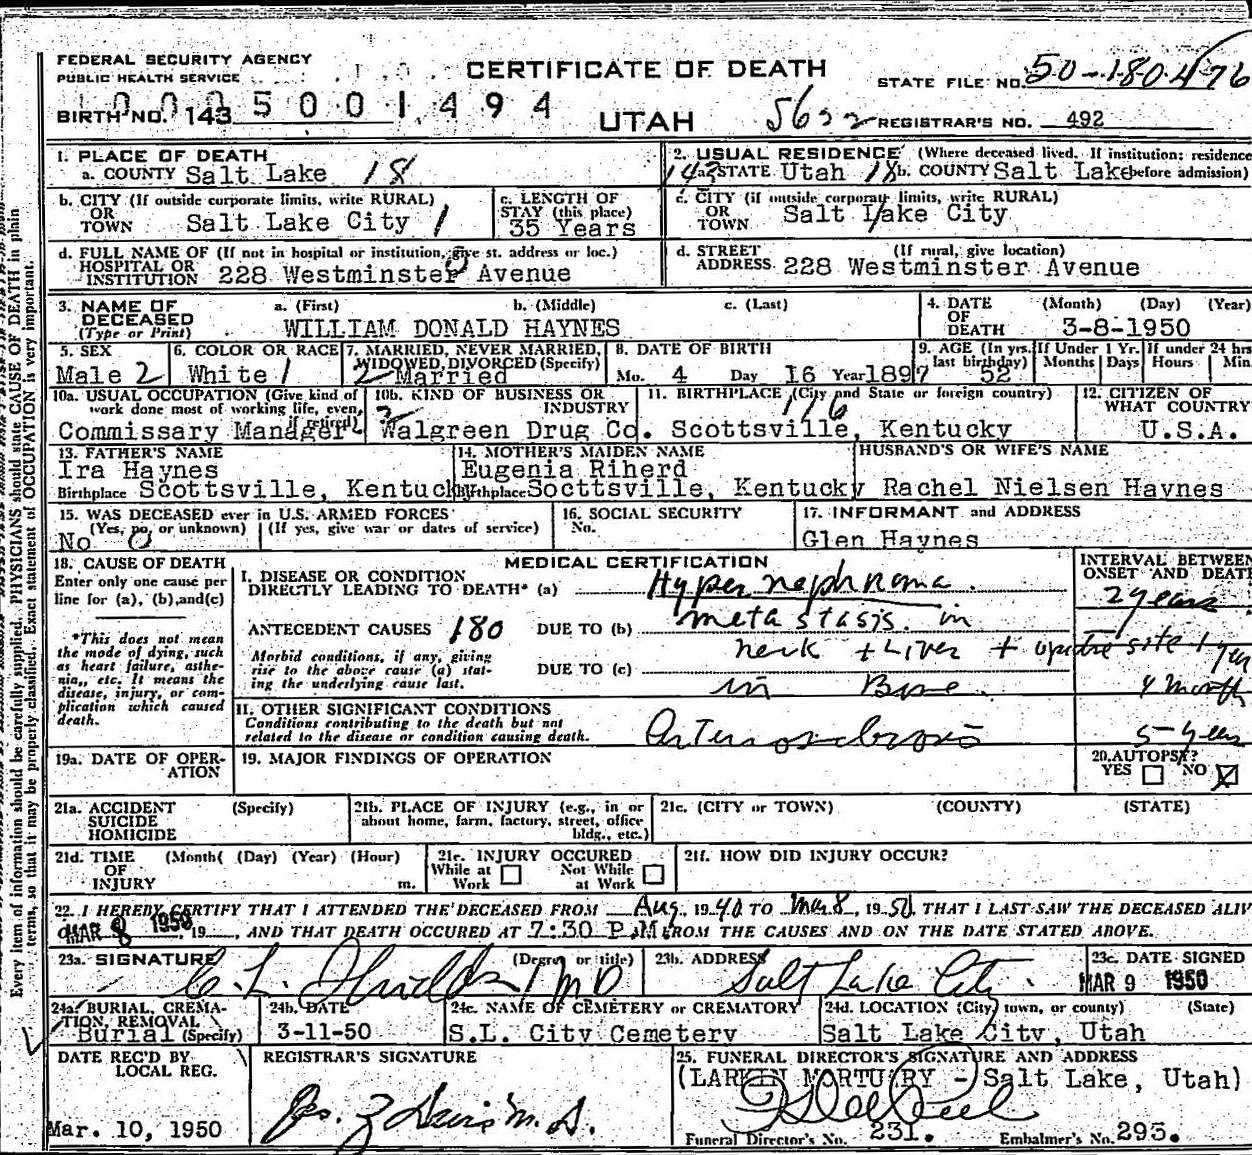 FEDERAL SECURITY AGENCY
PUBLIC HEALTH SERVICE
CERTIFICATE OF DEATH
STATE FILE NO. 50-180476
BIRTH NO. 143 5001494
UTAH
5622 REGISTRAR'S NO. 492
1. PLACE OF DEATH
a. COUNTY Salt Lake 18
2. USUAL RESIDENCE (Where deceased lived. If institution: residence before admission)
143 a. STATE Utah 18 b. COUNTY Salt Lake
b. CITY (If outside corporate limits, write RURAL) OR TOWN Salt Lake City 1
c. LENGTH OF STAY (this place) 35 Years
c. CITY (if outside corporate limits, write RURAL) OR TOWN Salt Lake City
d. FULL NAME OF (If not in hospital or institution, give st. address or loc.) HOSPITAL OR INSTITUTION 228 Westminster Avenue
d. STREET ADDRESS (If rural, give location) 228 Westminster Avenue
3. NAME OF DECEASED (Type or Print) a. (First) b. (Middle) c. (Last)
WILLIAM DONALD HAYNES
4. DATE OF DEATH (Month) (Day) (Year)
3-8-1950
5. SEX
Male 2
6. COLOR OR RACE
White 1
7. MARRIED, NEVER MARRIED, WIDOWED, DIVORCED (Specify)
2 Married
8. DATE OF BIRTH
Mo. 4 Day 16 Year 1897
9. AGE (In yrs. last birthday) 52
If Under 1 Yr. Months Days
If under 24 hrs Hours Min
10a. USUAL OCCUPATION (Give kind of work done most of working life, even if retired)
Commissary Manager
10b. KIND OF BUSINESS OR INDUSTRY
Walgreen Drug Co.
11. BIRTHPLACE (City and State or foreign country)
116
Scottsville, Kentucky
12. CITIZEN OF WHAT COUNTRY
U.S.A.
13. FATHER'S NAME
Ira Haynes
Birthplace Scottsville, Kentucky
14. MOTHER'S MAIDEN NAME
Eugenia Riherd
Birthplace Socttsville, Kentucky
HUSBAND'S OR WIFE'S NAME
Rachel Nielsen Haynes
15. WAS DECEASED ever in U.S. ARMED FORCES
(Yes, no, or unknown) (If yes, give war or dates of service)
No 0
16. SOCIAL SECURITY
No.
17. INFORMANT and ADDRESS
Glen Haynes
18. CAUSE OF DEATH
Enter only one cause per line for (a), (b), and (c)
*This does not mean the mode of dying, such as heart failure, asthenia, etc. It means the disease, injury, or complication which caused death.
MEDICAL CERTIFICATION
INTERVAL BETWEEN ONSET AND DEATH
I. DISEASE OR CONDITION DIRECTLY LEADING TO DEATH* (a) Hypernephroma 2 years
ANTECEDENT CAUSES 180 DUE TO (b) metastasis in
neck + Liver + site 1 year
Morbid conditions, if any, giving rise to the above cause (a) stating the underlying cause last.
DUE TO (c) in 4 month
II. OTHER SIGNIFICANT CONDITIONS
Conditions contributing to the death but not related to the disease or condition causing death.
Arteriosclerosis 5-year
19a. DATE OF OPERATION
19. MAJOR FINDINGS OF OPERATION
20. AUTOPSY?
YES NO X
21a. ACCIDENT SUICIDE HOMICIDE (Specify)
21b. PLACE OF INJURY (e.g., in or about home, farm, factory, street, office bldg., etc.)
21c. (CITY or TOWN) (COUNTY) (STATE)
21d. TIME OF INJURY (Month) (Day) (Year) (Hour) m.
21e. INJURY OCCURED
While at Work Not While at Work
21f. HOW DID INJURY OCCUR?
22. I HEREBY CERTIFY THAT I ATTENDED THE DECEASED FROM Aug, 1940 TO Mar 8, 1950, THAT I LAST SAW THE DECEASED ALIV
MAR 8 1950, 19 , AND THAT DEATH OCCURED AT 7:30 P.M. FROM THE CAUSES AND ON THE DATE STATED ABOVE.
23a. SIGNATURE (Degree or title)
C. L. MD
23b. ADDRESS
Salt Lake City
23c. DATE SIGNED
MAR 9 1950
24a. BURIAL, CREMATION, REMOVAL (Specify)
Burial
24b. DATE
3-11-50
24c. NAME OF CEMETERY or CREMATORY
S.L. City Cemetery
24d. LOCATION (City, town, or county) (State)
Salt Lake City, Utah
DATE REC'D BY LOCAL REG.
Mar. 10, 1950
REGISTRAR'S SIGNATURE
M.D.
25. FUNERAL DIRECTOR'S SIGNATURE AND ADDRESS
(LARKIN MORTUARY - Salt Lake, Utah)
Funeral Director's No. 231. Embalmer's No. 293.
Every item of information should be carefully supplied. PHYSICIANS should state CAUSE OF DEATH in plain
terms, so that it may be properly classified. Exact statement of OCCUPATION is very important.